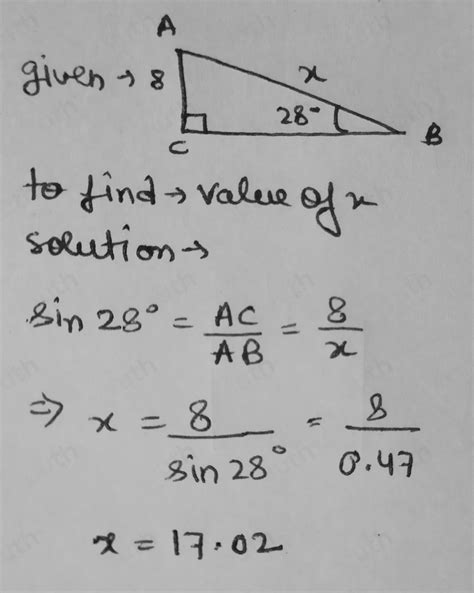 A
given → 8
x
28°
C
B
to find → value of x
solution →
sin 28° = AC/AB = 8/x
⇒ x = 8/sin 28° = 8/0.47
x = 17.02